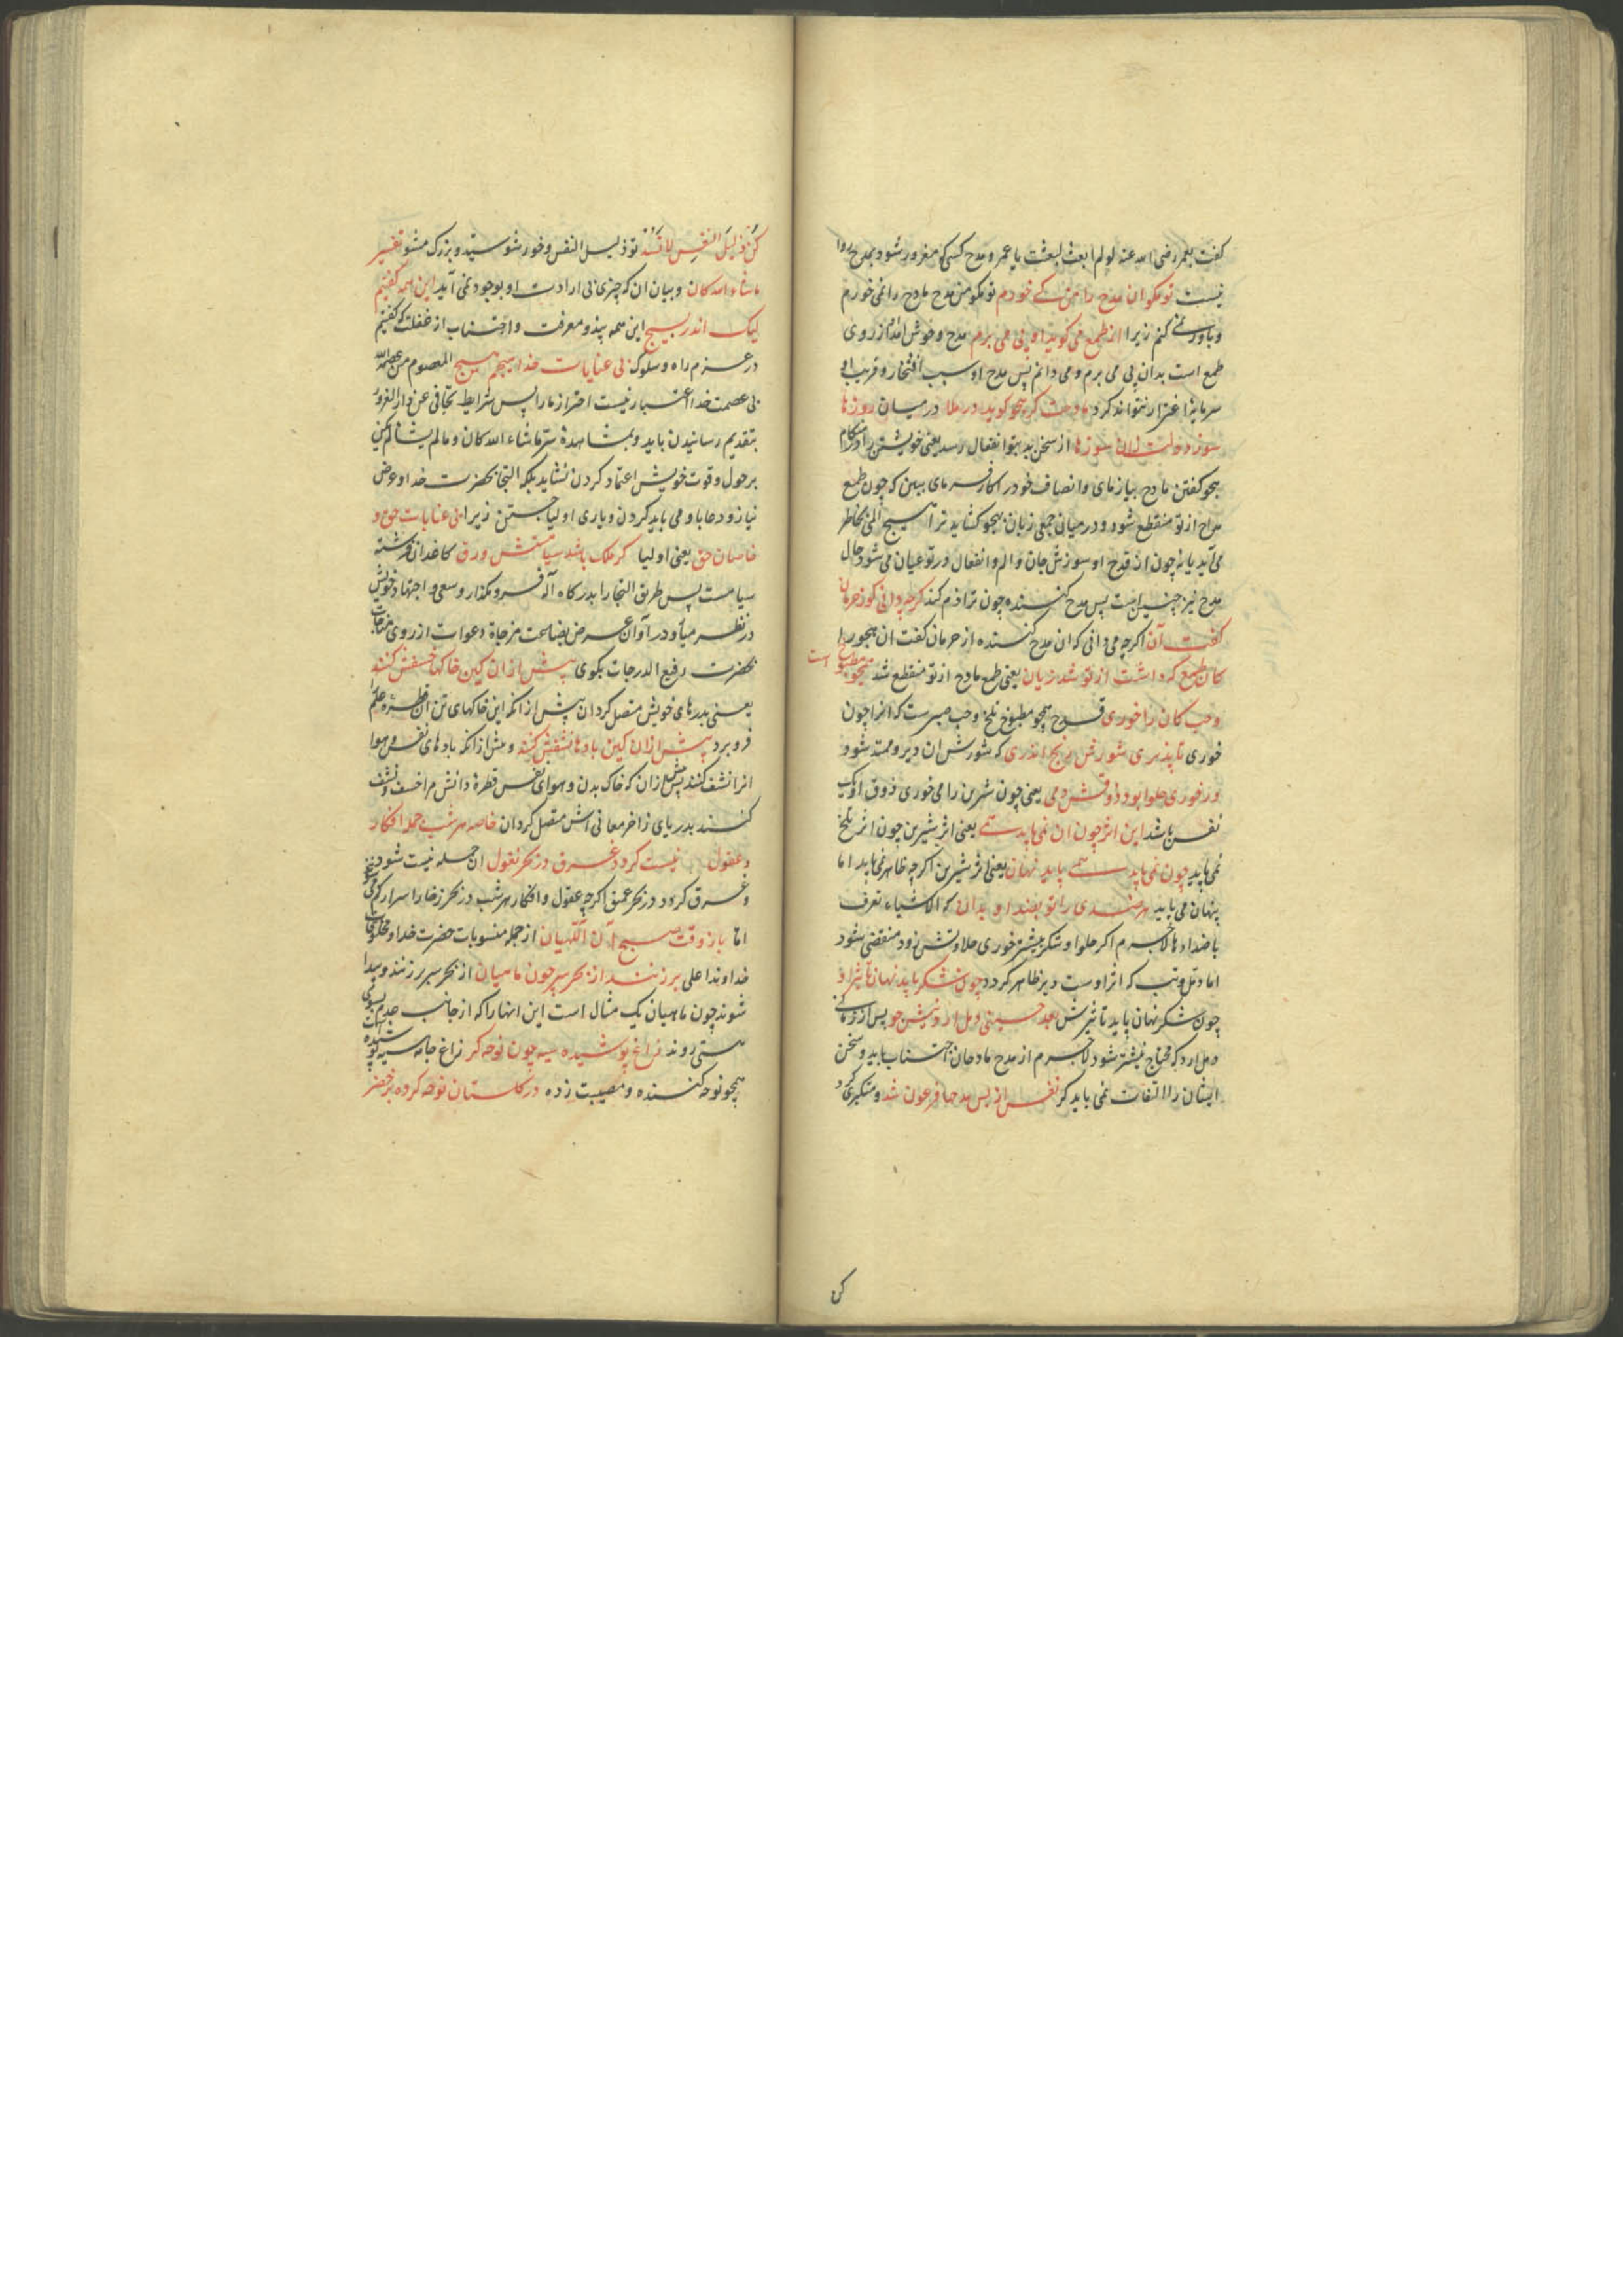 کفت بعمر رضی الله عنه لو لم ابعث لبعثت یا عمر و مدح کسی که مغرور شود بمدح روا
نیست تو مکو ان مدح را من کی خورم تو مکو من مدح مادح را نمی خورم
و باور نمی کنم زیرا از طمع می کوید او پی می برم مدح و خوش آمد از روی
طمع است بدان پی می برم و می دانم پس مدح او سبب افتخار و فریب او
سرمایه اغترار نتواند کرد مادحت کر هجو کوید در ملا در میان روزها
سوزد دلت زان سوزها از سخن بد بتو انفعال رسد یعنی خویشتن را در هنکام
هجو کفتن مادح بیازمای و انصاف خود را کار فرمای ببین که چون طمع
مداح از تو منقطع شود و در میان جمعی زبان بهجو کشاید ترا هیچ المی بخاطر
می آید یا نه چون از قدح او سوزش جان و الم و انفعال در تو عیان می شود حال
مدح نیز چنین است پس مدح کننده چون ترا ذم کند کرچه دانی کو ز حرمان
کفت آن اکرچه می دانی که ان مدح کننده از حرمان کفت ان هجو را
کان طمع که داشت از تو شد زیان یعنی طمع مادح از تو منقطع شد همچو مطبوخ است
و حب کان را خوری قدح همچو مطبوخ تلخ و حب صبرست که انرا چون
خوری تا بدیری شورش و رنج اندری که شورش ان دیر و ممتد شود
ور خوری حلوا بود ذوقش دمی یعنی چون شیرین را می خوری ذوق او یک
نفس باشد این اثر چون ان نمی پاید همی یعنی اثر شیرین چون اثر تلخ
نمی پاید چون نمی پاید همی پاید نهان یعنی اثر شیرین اکرچه ظاهر نمی پاید اما
پنهان می پاید هر ضدی را تو بضد او بدان که الاشیاء تعرف
باضدادها لاجرم اکر حلوا و شکر بیشتر خوری حلاوتش زود منقضی شود
اما دمل و تب که اثر اوست دیر ظاهر کردد چون شکر پاید نهان تاثیر او
چون شکر نهان پاید تاثیرش بعد حینی دمل ارد نیش جو پس از زمانی
دمل ارد که محتاج نیشتر شود لاجرم از مدح مادحان اجتناب باید و سخن
ایشان را التفات نمی باید کرد نفس از بس مدحها فرعون شد و متکبری کرد
کن
کن ذلیل النفس لا تسد تو ذلیل النفس و خور شو سید و بزرک مشو تفسیر
ما شاء الله کان و بیان ان که چیزی بی ارادت او بوجود نمی آید این همه کفتیم
لیک اندر بسیج این همه پند و معرفت و اجتناب از غفلت که کفتیم
در عزم راه و سلوک بی عنایات خدا هیچیم هیچ المعصوم من عصمه الله
بی عصمت خدا اعتبار نیست احتراز ما را پس شرایط تجافی عن دار الغرور
بتقدیم رسانیدن باید و بمشاهدهٔ سر ما شاء الله کان و ما لم یشا لم یکن
بر حول و قوت خویش اعتماد کردن نشاید بلکه التجا بحضرت خدا و عرض
نیاز و دعا باو می باید کردن و یاری اولیا جستن زیرا بی عنایات حق و
خاصان حق یعنی اولیا کر ملک باشد سیاهستش ورق کاغذ ان فرشته
سیاهست پس طریق التجا را بدرکاه آله فرو مکذار و سعی و اجتهاد خویش
در نظر میاور و در آوان عرض بضاعت مزجاة دعوات از روی مناجات
بحضرت رفیع الدرجات بکوی پیش از ان کین خاکها خسفش کنند
یعنی بدریاهای خویش متصل کردان پیش از انکه این خاکهای تن ان قطرهٔ علم
فرو برد پیش از ان کین بادها نشفش کنند و پیش از انکه بادهای نفس و هوا
انرا نشف کنند پیش از ان که خاک بدن و هوای نفس قطرهٔ دانش مرا خسف و نشف
کنند بدریای زاخر معانی اش متصل کردان خاصه هر شب جمله افکار
و عقول نیست کردد غرق در بحر نغول ان جمله نیست شود نیز
و غرق کردد در بحر عمیق اکرچه عقول و افکار هر شب در بحر زخار اسرار کم می شود
اما باز وقت صبح آن اللهیان از جمله منسوبات حضرت خدا و مخلوقات
خداوند اعلی برزنند از بحر سر چون ماهیان از بحر سر برزنند و پیدا
شوند چون ماهیان یک مثال است این انها را که از جانب عدم بسوی
هستی روند زاغ پوشیده سیه چون نوحه کر زاغ جامه سیه پوشیده است
همچو نوحه کننده و مصیبت زده در کلستان نوحه کرده بر خضر